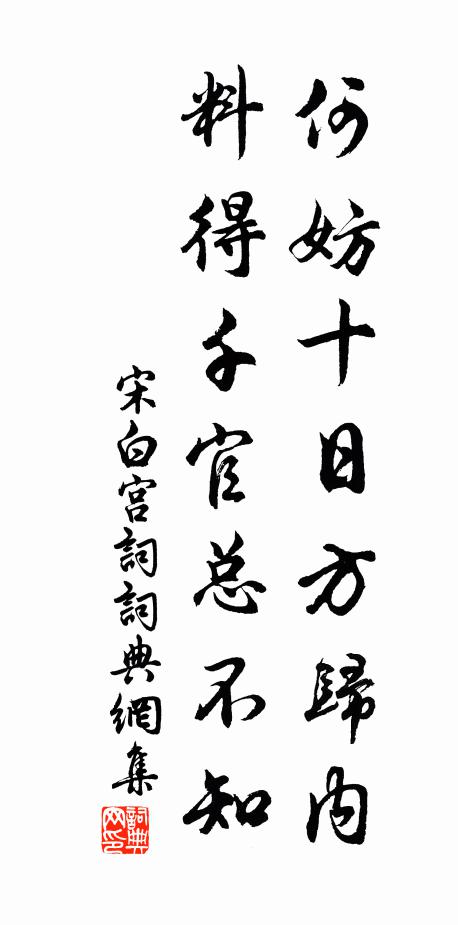 何妨十日方歸内
料得千官总不知
宋白宫詞詞典網集
詞典网印